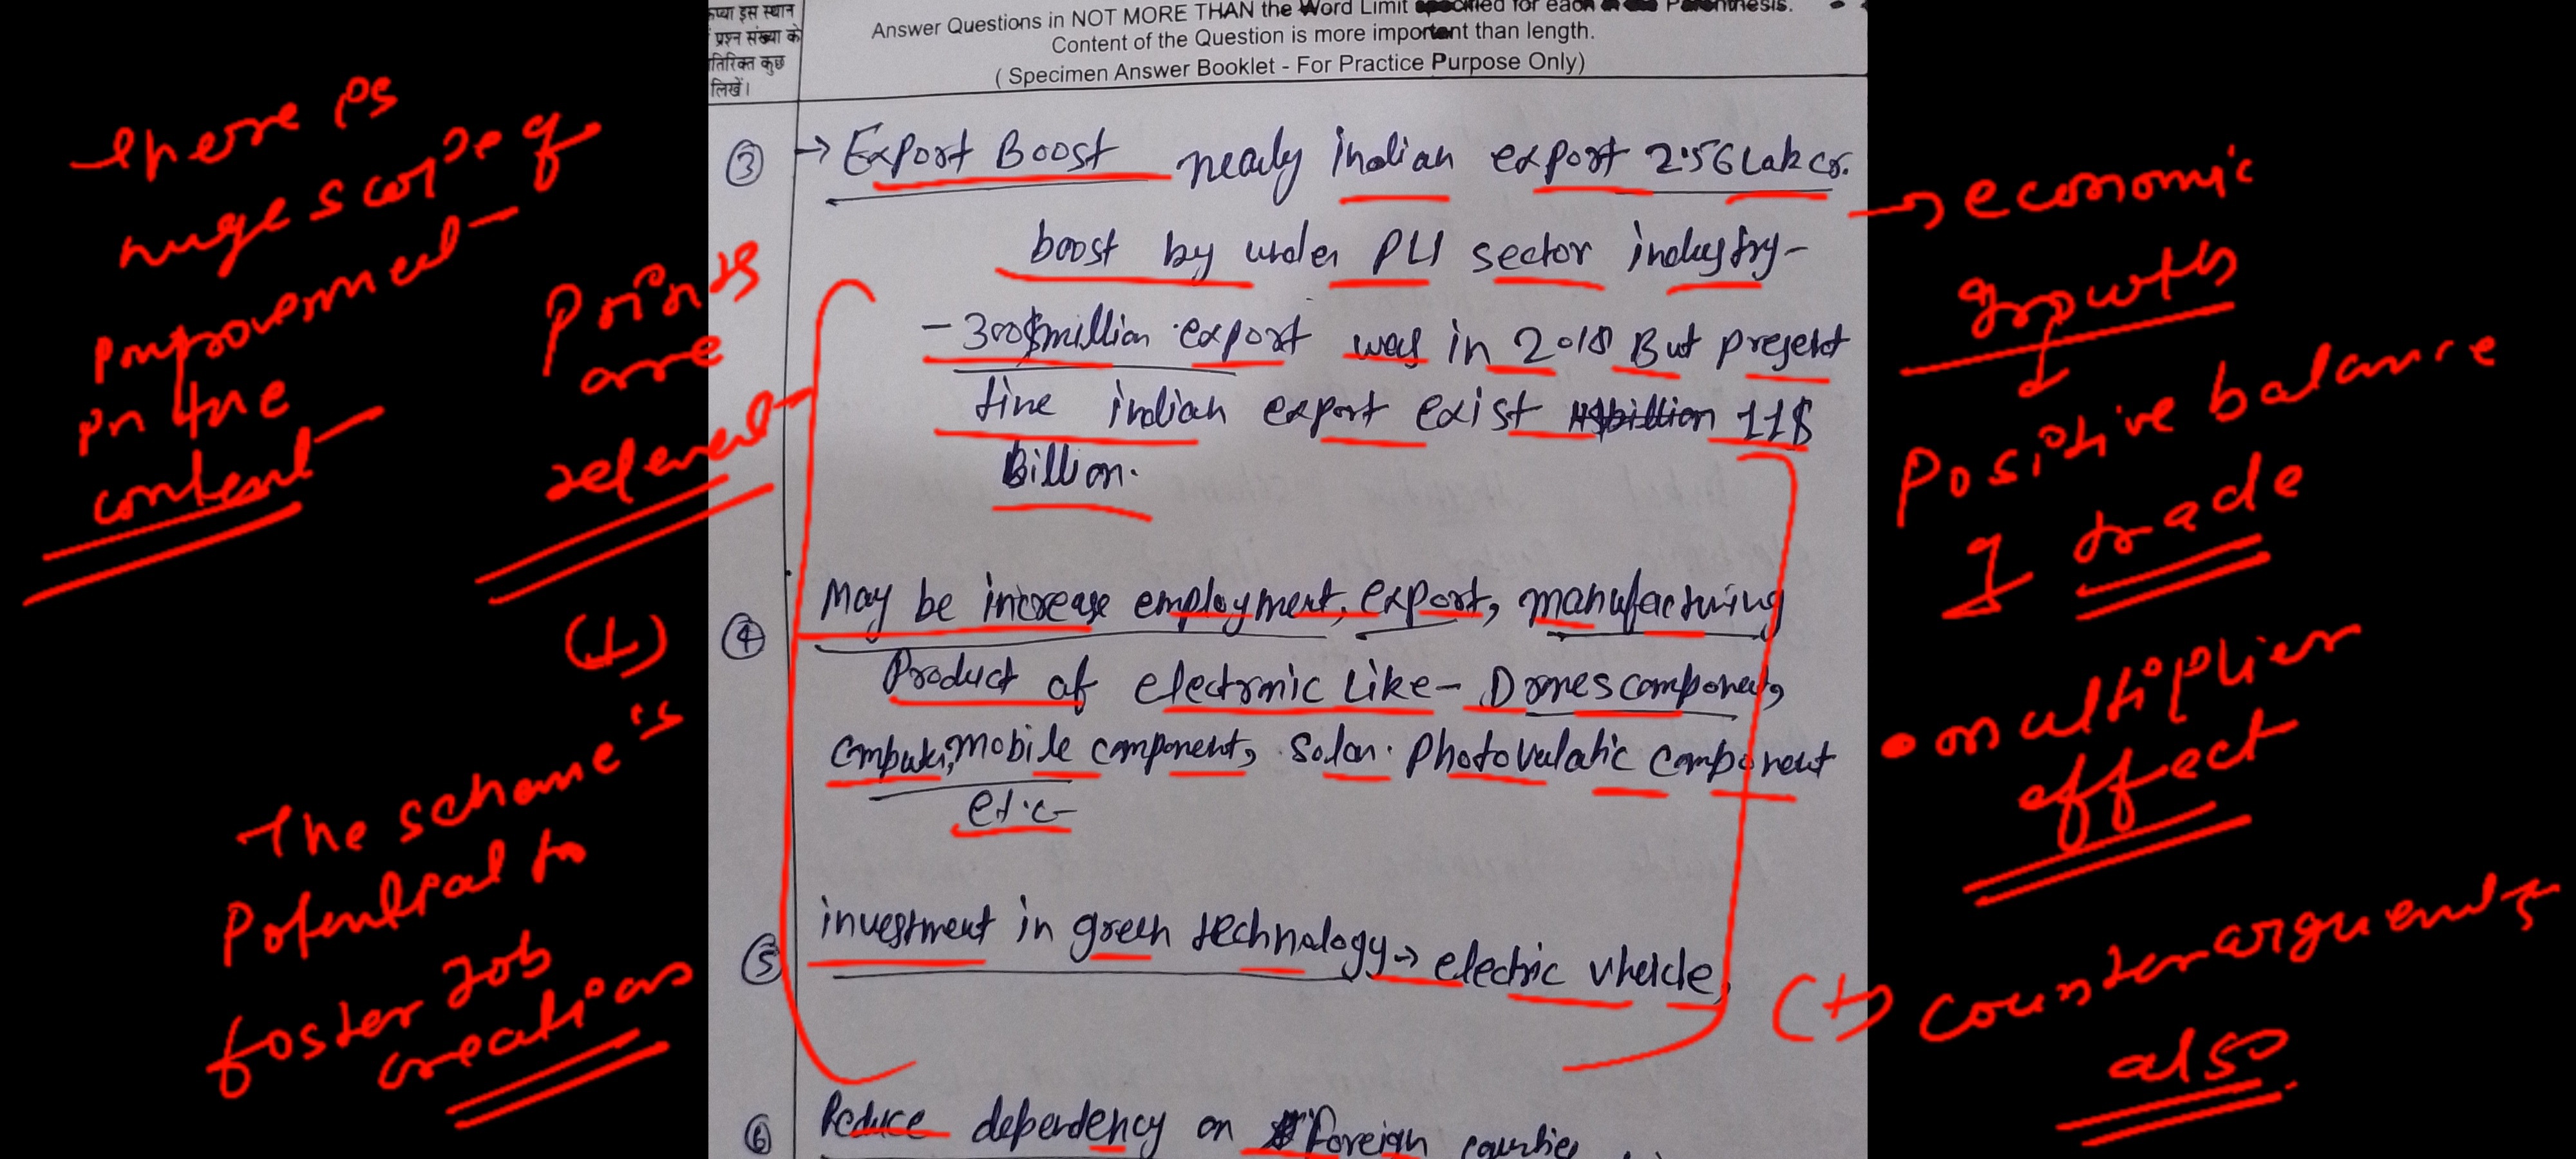 क्पया इस स्थान
प्रश्न संख्या को
तिरिक्त कुछ
लिखें।
Answer Questions in NOT MORE THAN the Word Limit specified for each in the Parenthesis.
Content of the Question is more important than length.
( Specimen Answer Booklet - For Practice Purpose Only)
③ → Export Boost nearly indian export 2.56 Lak cr.
boost by under PLI sector industry-
- 300$million export was in 2018 But present
time indian export exist 11$
Billion.
④ May be increase employment, export, manufacturing
Product of electronic Like- Drones component,
Computer, mobile component, Solar Photovalatic component
etc
⑤ investment in green technology → electric vheicle,
⑥ Reduce dependency on Foreign countries
there is
huge scope of
improvement
in the
content
Points
are
relevant
(+)
The scheme's
Potential to
foster Job
creations
→ economic
growth
↓
Positive balance
of trade
• multiplier
effect
(+) counter arguments
also